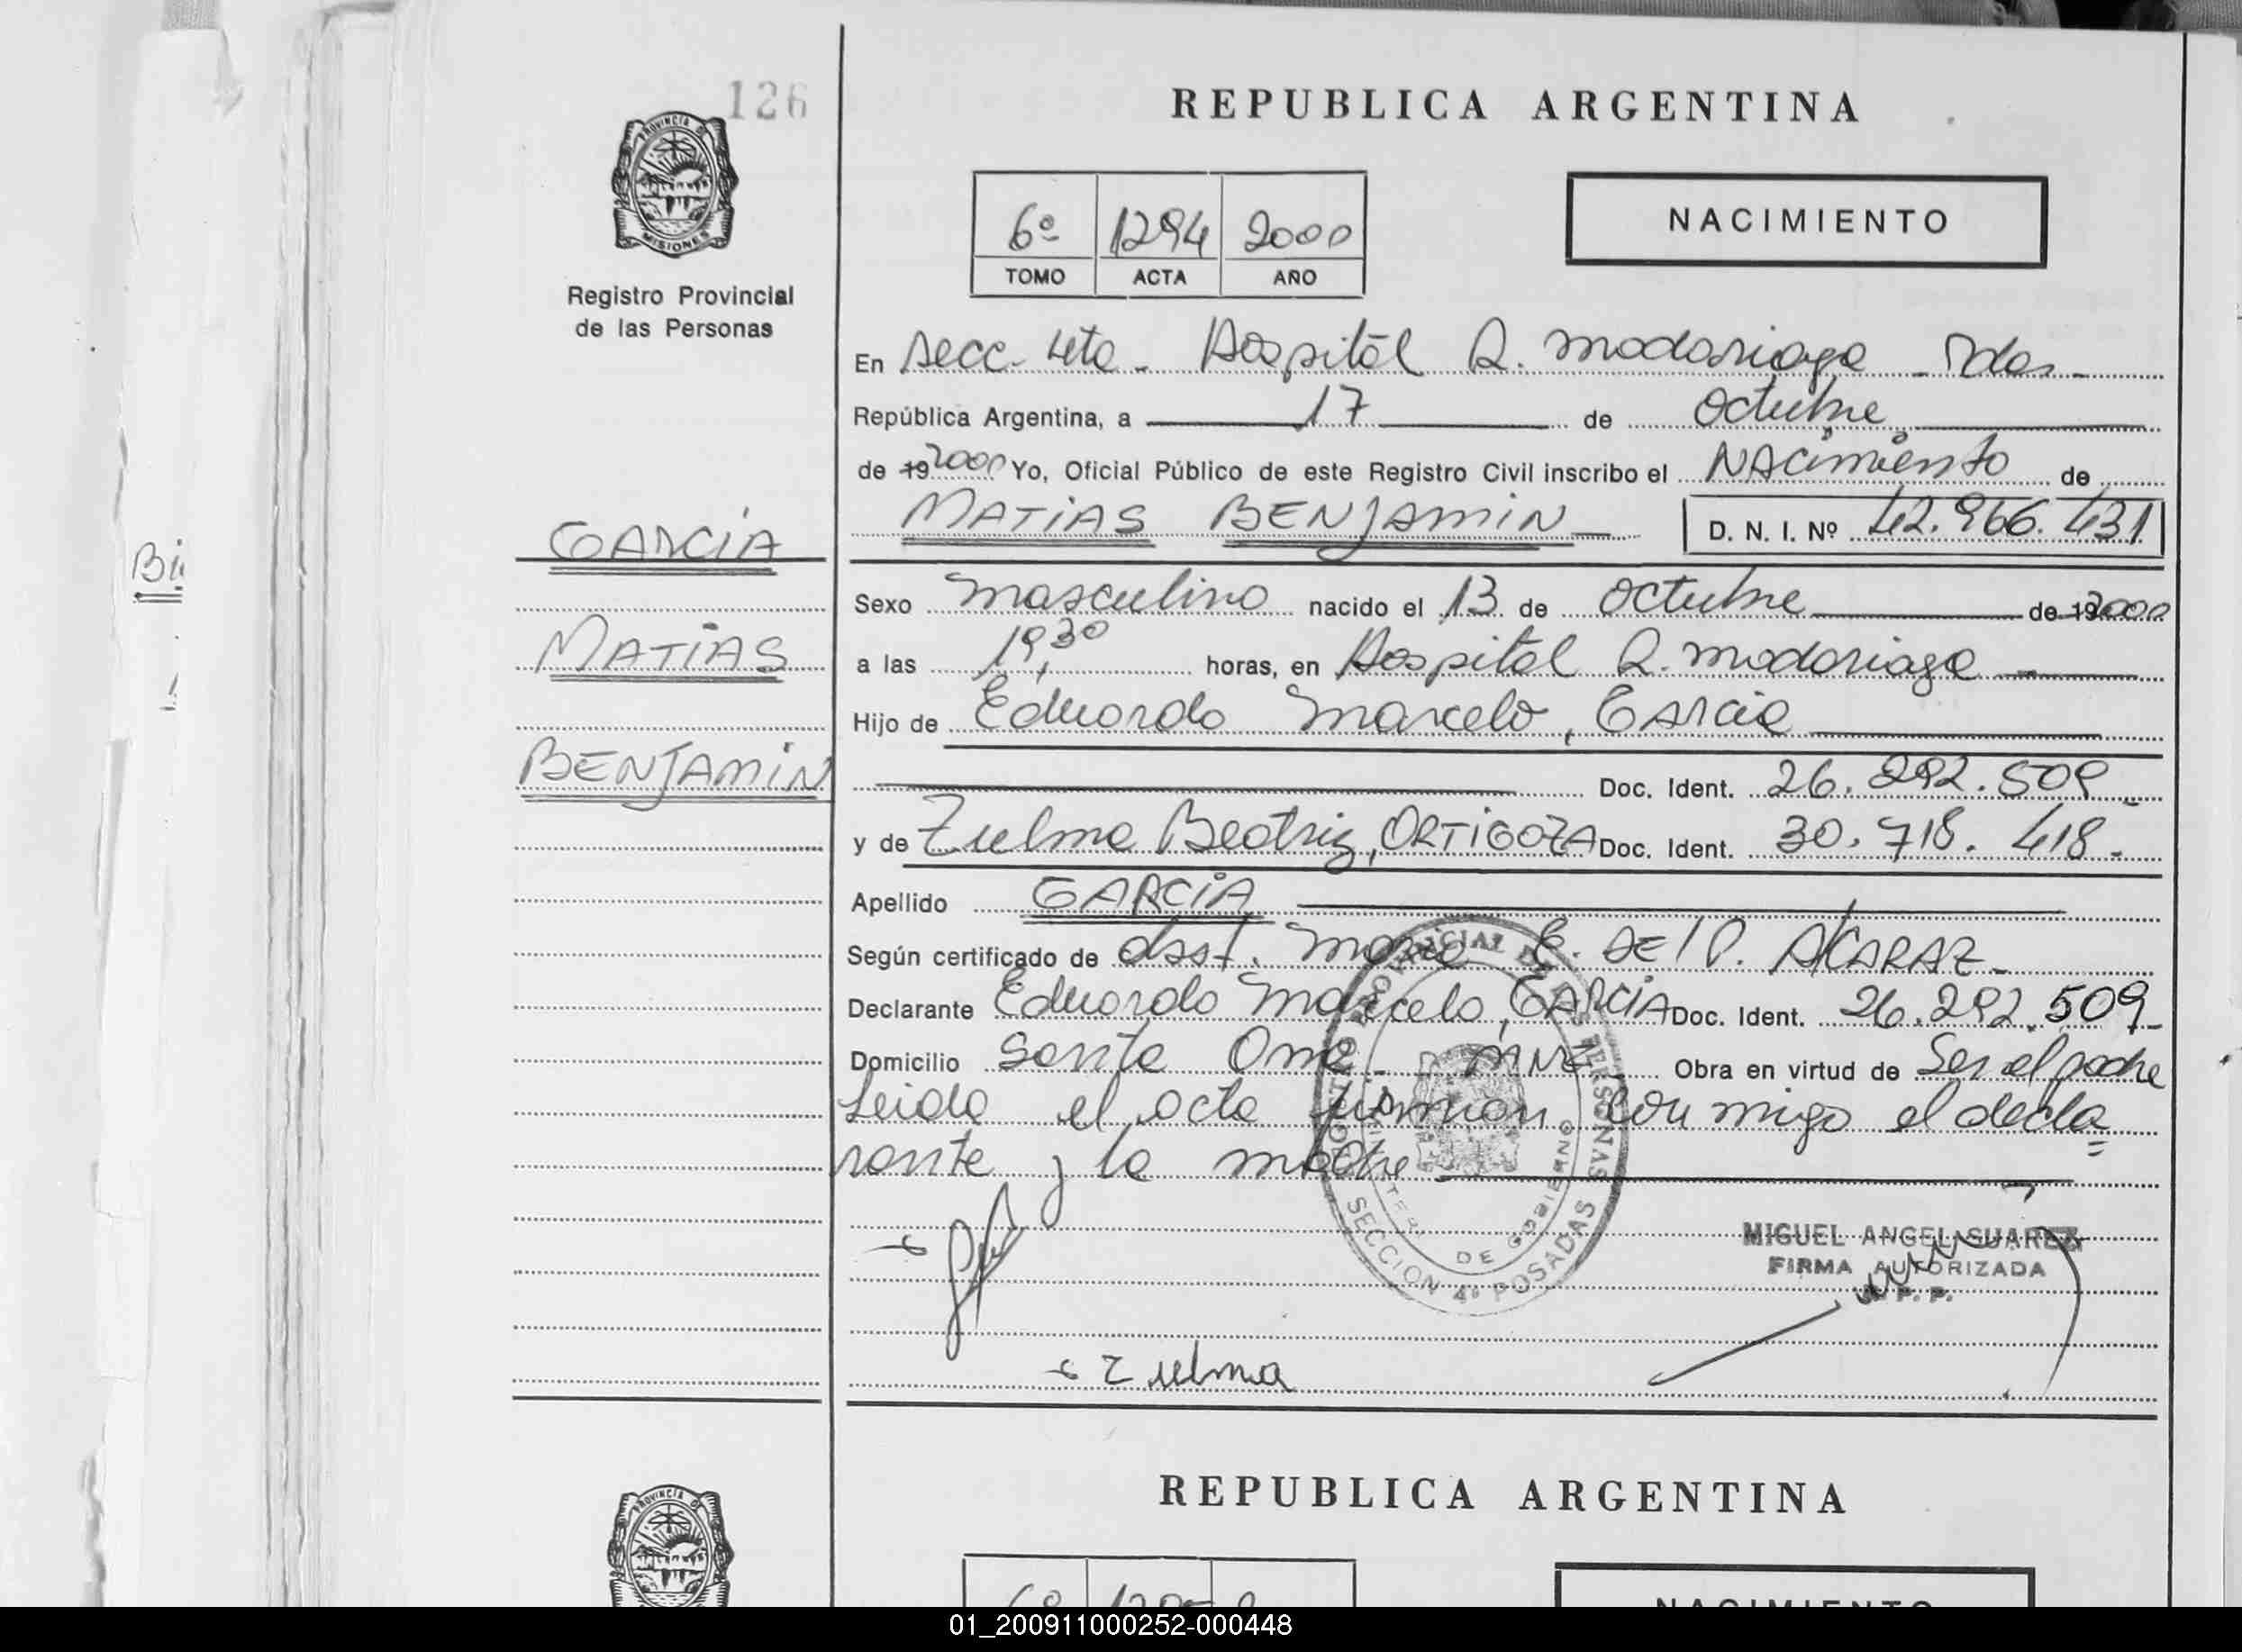 126
PROVINCIA DE
MISIONES
Registro Provincial
de las Personas
GARCIA
MATIAS
BENJAMIN
Bi
REPUBLICA ARGENTINA
6º 1294 2000
TOMO ACTA AÑO
NACIMIENTO
En Secc. 4ta. Hospital R. Madariaga - Pdas -
República Argentina, a 17 de octubre
de 19 2000 Yo, Oficial Público de este Registro Civil inscribo el NAcimiento de
MATIAS BENJAMIN D. N. I. Nº 42.966.431
Sexo masculino nacido el 13 de octubre de 19 2000
a las 19,30 horas, en Hospital R. Madariaga
Hijo de Eduardo Marcelo, GArcia
Doc. Ident. 26.292.509
y de Zulma Beatriz, ORTIGOZA Doc. Ident. 30.718.418.-
Apellido GARCIA
Según certificado de obst. Maria E. DE/P. AlCARAZ-
Declarante Eduardo Marcelo, GARCIA Doc. Ident. 26.292.509-
Domicilio Santa Ana - MNES Obra en virtud de Ser el padre
Leida el acta firman con migo el decla=
rante y la madre
REGISTRO PROVINCIAL DE LAS PERSONAS
MINISTERIO DE GOBIERNO
SECCION 4ª POSADAS
MIGUEL ANGEL SUAREZ
FIRMA AUTORIZADA
R. P. P.
Zulma
PROVINCIA DE
REPUBLICA ARGENTINA
NACIMIENTO
01_200911000252-000448